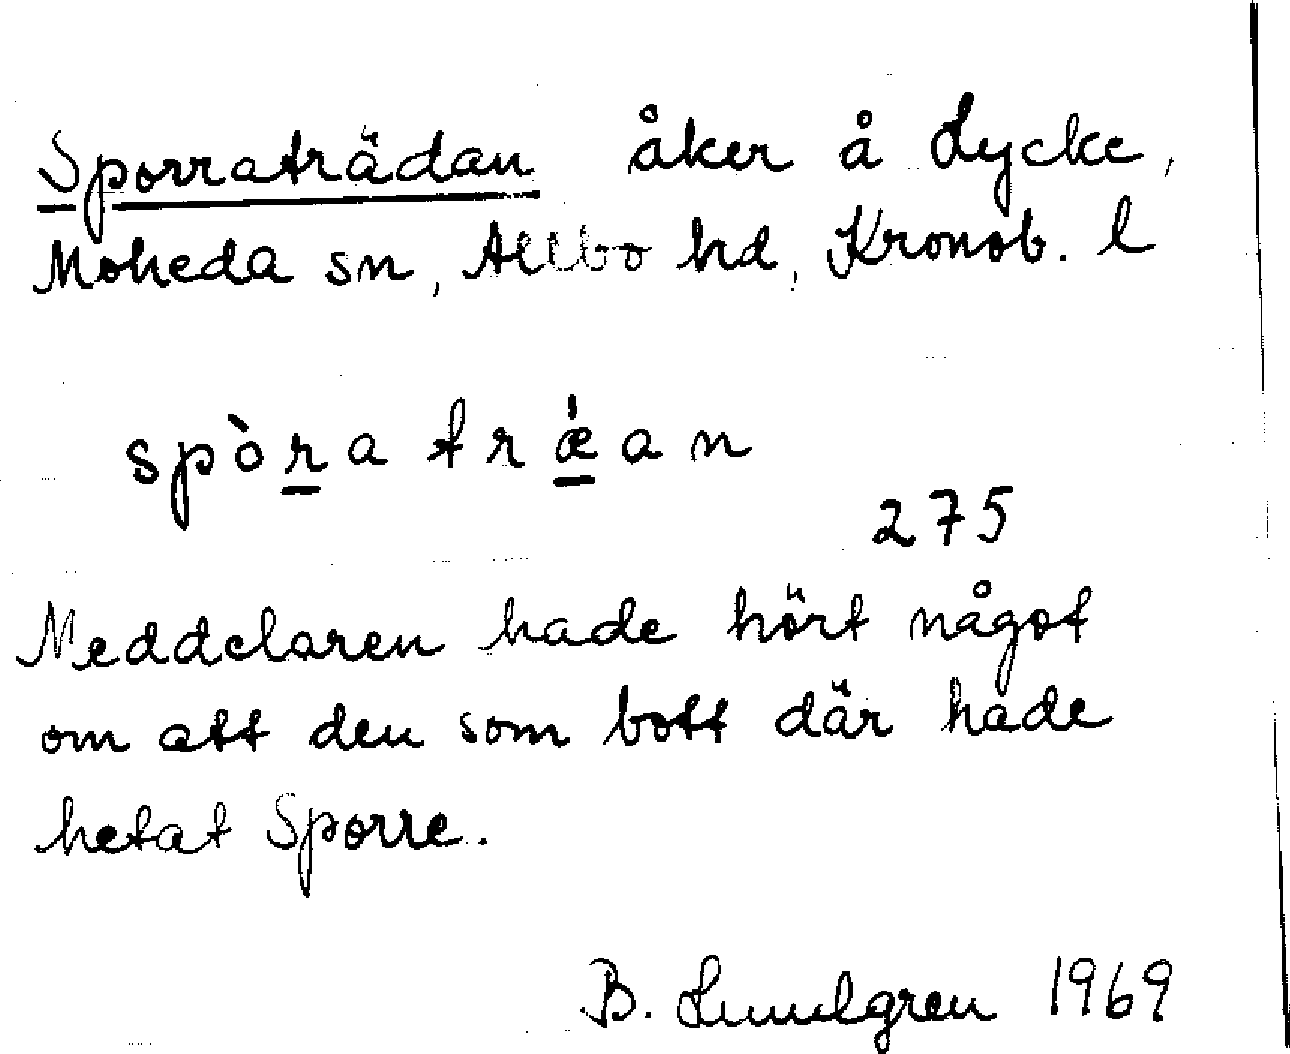 Sporraträdan åker å Lycke,
Moheda sn, Allbo hd, Kronob. l
spòr̲atrǽ̲an
275
Meddelaren hade hört något
om att den som bott där hade
hetat Sporre.
B. Lundgren 1969